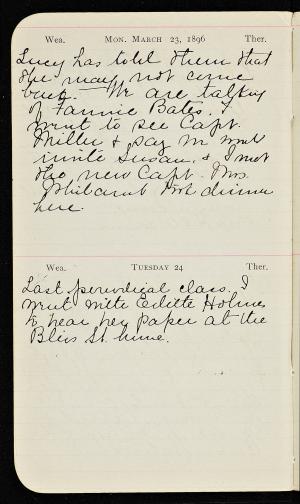 Wea. MON. MARCH 23, 1896 Ther.
Lucy has told them that
she may not come
back. We are talking
of Fannie Bates. I
went to see Capt.
Miller & say we would
invite Susan, & I met
the new Capt. Mrs.
took dinner
here.
Wea. TUESDAY 24 Ther.
Last periodical class. I
went with Edith Holmes
to hear her paper at the
Bliss St. home.